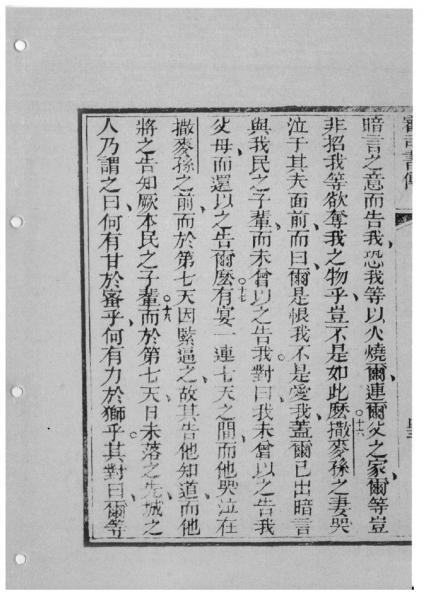 審司書傳
暗言之意而告我恐我等以火燒爾連爾父之家爾等豈
非招我等欲奪我之物乎豈不是如此麽撒麥孫之妻哭
泣于其夫面前而曰爾是恨我不是愛我蓋爾已出暗言
與我民之子輩而未曾以之告我對曰我未曾以之告我
父母而還以之告爾麽有宴一連七天之間而他哭泣在
撒麥孫之前而於第七天因緊逼之故其告他知道而他
將之告知厥本民之子輩而於第七天日未落之先城之
人乃謂之曰何有甘於蜜乎何有力於獅乎其對曰爾等